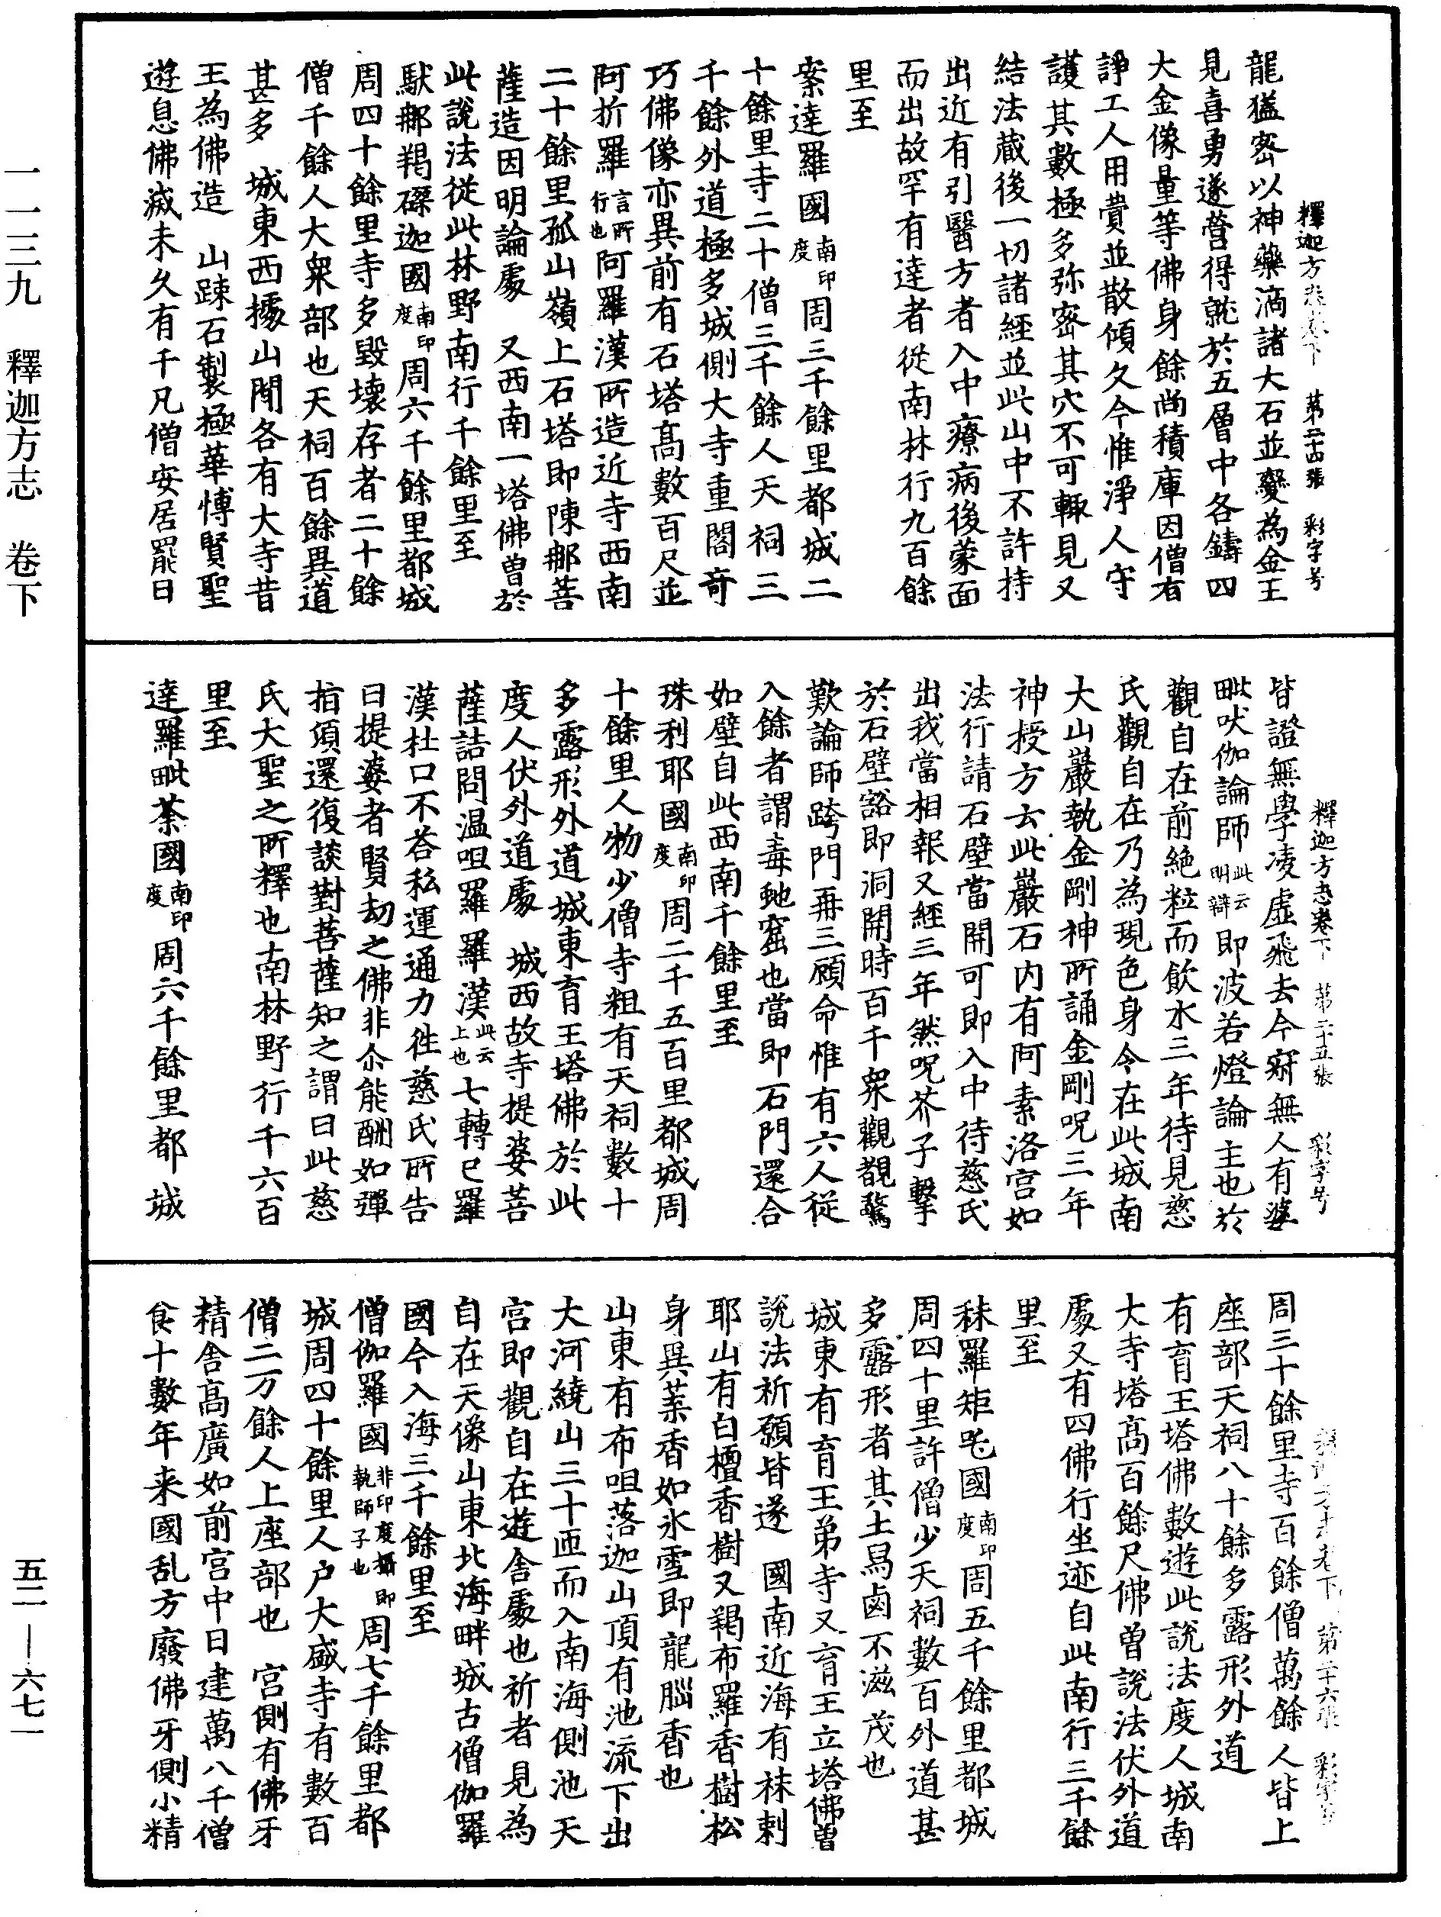 釋迦方志卷下 第二十四張 彩字号
龍猛密以神藥滴諸大石並變為金王
見喜勇遂營得就於五層中各鑄四
大金像量等佛身餘尚積庫因僧有
諍工人用賞並散傾久今惟淨人守
護其數極多弥密其穴不可輙見又
結法蔵後一切諸經並此山中不許持
出近有引醫方者入中療病後蒙面
而出故罕有達者從南林行九百餘
里至
案達羅國南印度周三千餘里都城二
十餘里寺二十僧三千餘人天祠三
千餘外道極多城側大寺重閣奇
巧佛像亦異前有石塔髙數百尺並
阿折羅言所行也阿羅漢所造近寺西南
二十餘里孤山嶺上石塔即陳那菩
薩造因明論處 又西南一塔佛曽於
此說法從此林野南行千餘里至
馱那羯磔迦國南印度周六千餘里都城
周四十餘里寺多毀壊存者二十餘
僧千餘人大衆部也天祠百餘異道
甚多 城東西據山閒各有大寺昔
王為佛造 山疎石製極華博賢聖
遊息佛滅未久有千凡僧安居罷日
釋迦方志卷下 第二十五張 彩字号
皆證無學凌虚飛去今寂無人有婆
毗吠伽論師此云明辯即波若燈論主也於
觀自在前絶粒而飲水三年待見慈
氏觀自在乃為現色身令在此城南
大山巖執金剛神所誦金剛呪三年
神授方云此巖石内有阿素洛宮如
法行請石壁當開可即入中待慈氏
出我當相報又經三年然呪芥子擊
於石壁豁即洞開時百千衆觀覩驚
歎論師跨門再三顧命惟有六人從
入餘者謂毒虵窟也當即石門還合
如壁自此西南千餘里至
珠利耶國南印度周二千五百里都城周
十餘里人物少僧寺粗有天祠數十
多露形外道城東育王塔佛於此
度人伏外道處 城西故寺提婆菩
薩詰問温呾羅羅漢此云上也七轉已羅
漢杜口不荅私運通力徃慈氏所告
曰提婆者賢刧之佛非尒能酬如彈
指頃還復談對菩薩知之謂曰此慈
氏大聖之所釋也南林野行千六百
里至
達羅毗荼國南印度周六千餘里都 城
釋迦方志卷下 第二十六張 彩字号
周三十餘里寺百餘僧萬餘人皆上
座部天祠八十餘多露形外道
有育王塔佛數遊此說法度人城南
大寺塔髙百餘尺佛曽說法伏外道
處又有四佛行坐迹自此南行三千餘
里至
秣羅矩吒國南印度周五千餘里都城
周四十里許僧少天祠數百外道甚
多露形者其土舄鹵不滋茂也
城東有育王弟寺又育王立塔佛曽
說法祈願皆遂 國南近海有秣剌
耶山有白檀香樹又羯布羅香樹松
身異葉香如氷雪即龍腦香也
山東有布呾落迦山頂有池流下出
大河繞山三十匝而入南海側池天
宮即觀自在遊舍處也祈者見為
自在天像山東北海畔城古僧伽羅
國今入海三千餘里至
僧伽羅國非印度攝即執師子也周七千餘里都
城周四十餘里人户大盛寺有數百
僧二万餘人上座部也 宮側有佛牙
精舎髙廣如前宮中日建萬八千僧
食十數年来國乱方廢佛牙側小精
一一三九 釋迦方志 卷下
五二—六七一